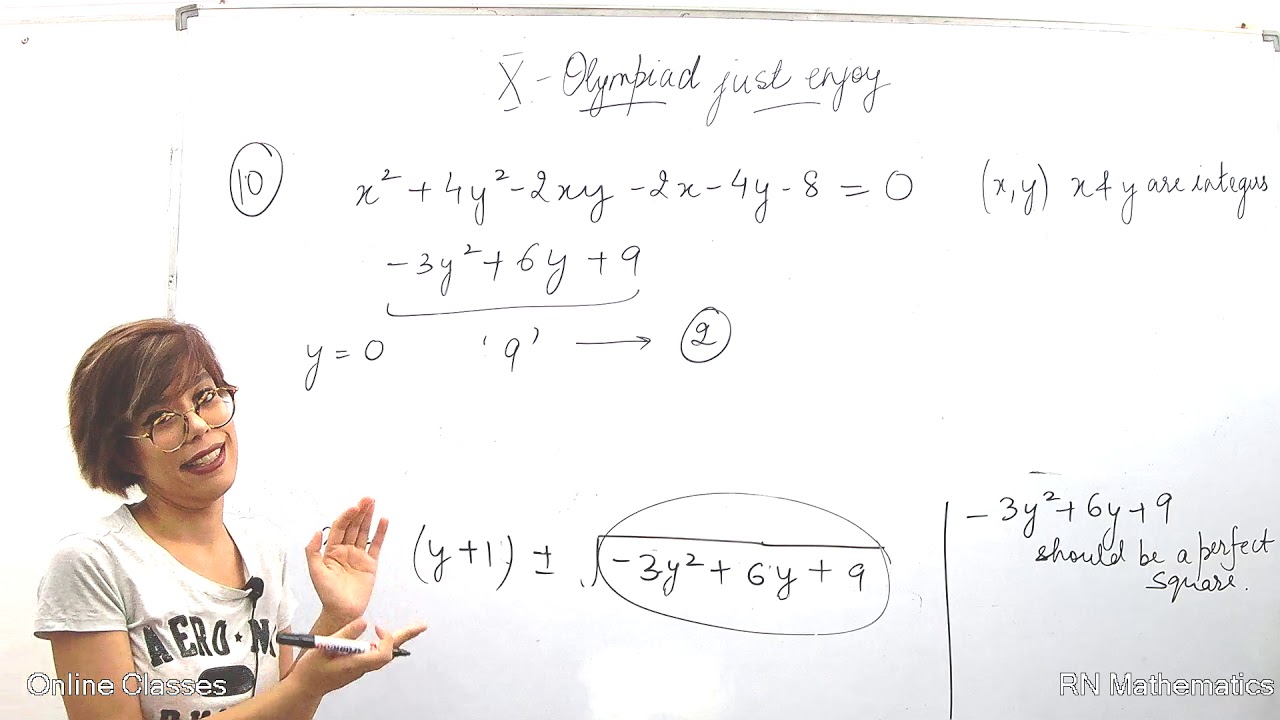 X - Olympiad just enjoy
10 x² + 4y² - 2xy - 2x - 4y - 8 = 0 (x, y) x & y are integers
-3y² + 6y + 9
y = 0 '9' → 2
(y+1) ± √-3y² + 6y + 9
-3y² + 6y + 9
should be a perfect
square.
AERO
Online Classes
RN Mathematics